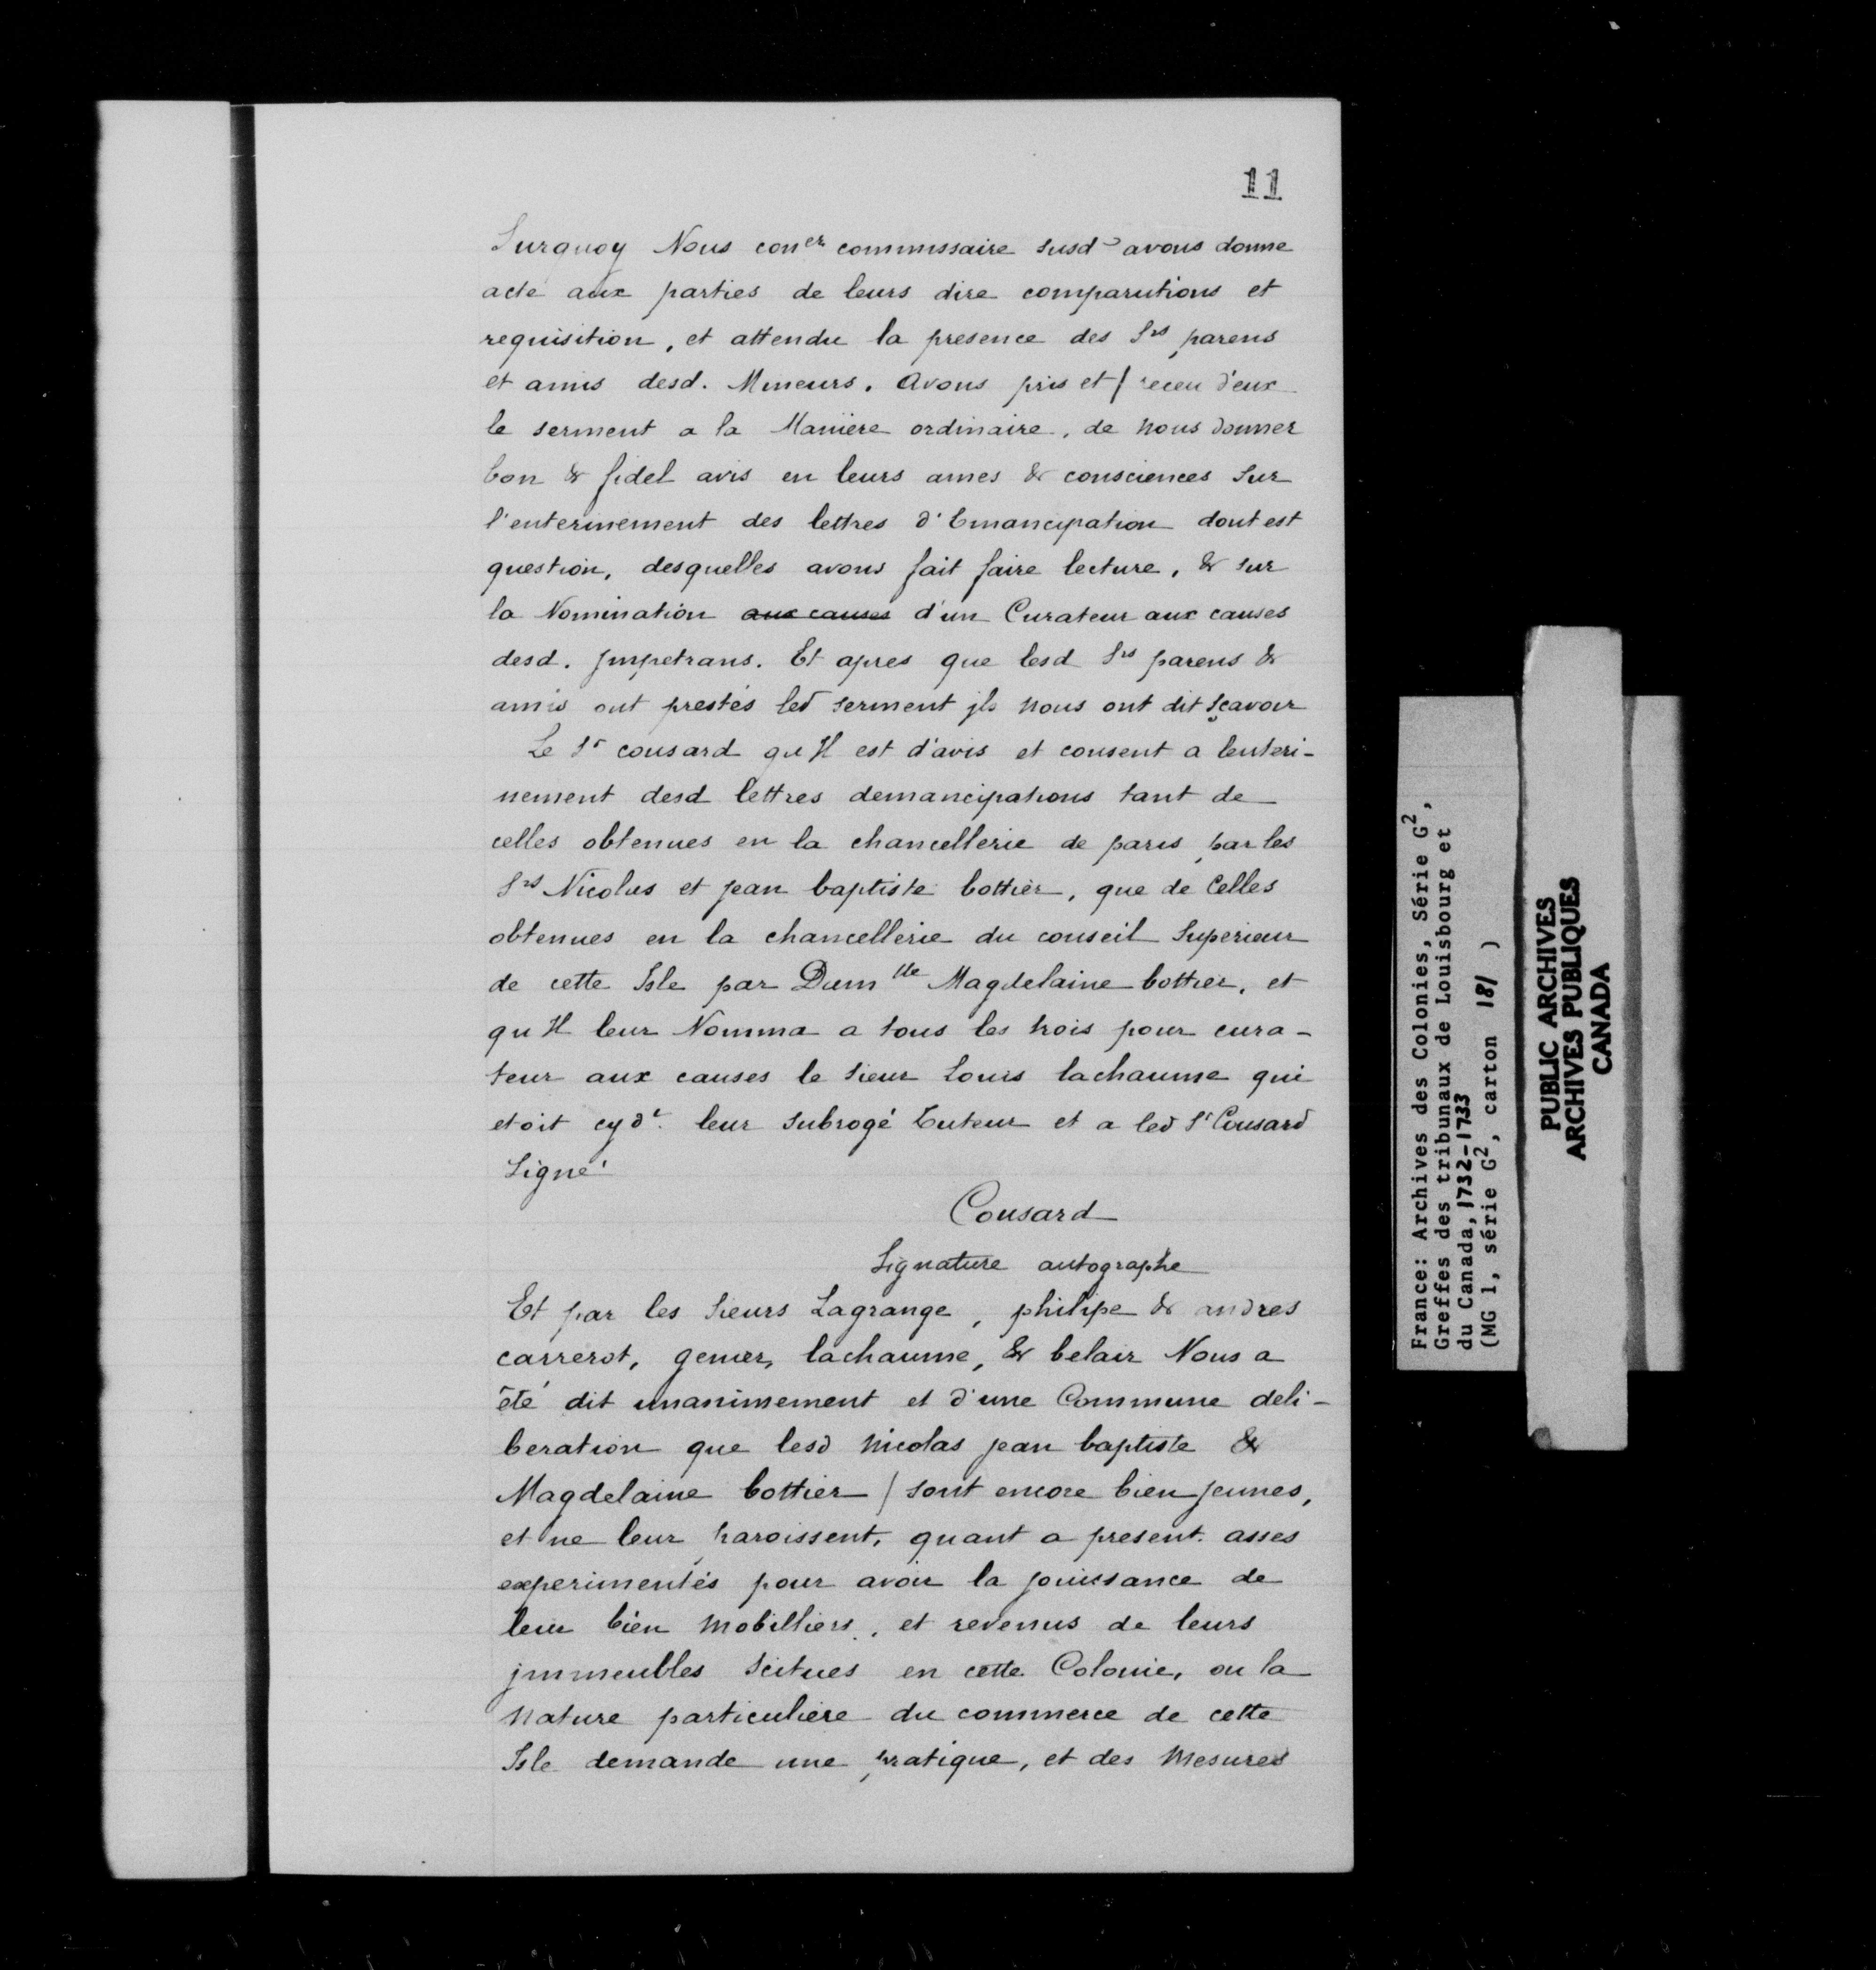 11
Surquoy Nous con^er commissaire susd avons donne
acte aux parties de leurs dire comparutions et
requisition, et attendu la presence des S^rs parens
et amis desd. Mineurs. Avons pris et / receu d'eux
le serment a la Maniere ordinaire, de nous donner
bon & fidel avis en leurs ames & consciences sur
l'enterinement des lettres d'Emancipation dont est
question, desquelles avons fait faire lecture, & sur
la Nomination aux causes d'un Curateur aux causes
desd. jmpetrans. Et apres que lesd S^rs parens &
amis ont prestés led serment jls nous ont dit sçavoir
Le S^r cousard qu Il est d'avis et consent a lenteri-
nement desd lettres demancipations tant de
celles obtenues en la chancellerie de paris par les
S^rs Nicolas et jean baptiste bottier, que de Celles
obtenues en la chancellerie du conseil Superieur
de cette Isle par Dam^lle Magdelaine bottier, et
qu Il leur Nomma a tous les trois pour cura-
teur aux causes le sieur Louis lachaume qui
etoit cyd^t. leur subrogé tuteur et a led S^r Cousard
Signé
Cousard
Signature autographe
Et par les Sieurs Lagrange, philipe & andres
carrerot, genier, lachaume, & belair Nous a
été dit unanimement et d'une Commune deli-
beration que lesd Nicolas jean baptiste &
Magdelaine bottier / sont encore bien jeunes,
et ne leur paroissent, quant a present. asses
experimentés pour avoir la jouissance de
leur bien mobilliers, et revenus de leurs
jmmeubles scitues en cette Colonie, ou la
Nature particuliere du commerce de cette
Isle demande une pratique, et des Mesures
France: Archives des Colonies, Série G2,
Greffes des tribunaux de Louisbourg et
du Canada, 1732-1733
(MG 1, série G2, carton 181 )
PUBLIC ARCHIVES
ARCHIVES PUBLIQUES
CANADA